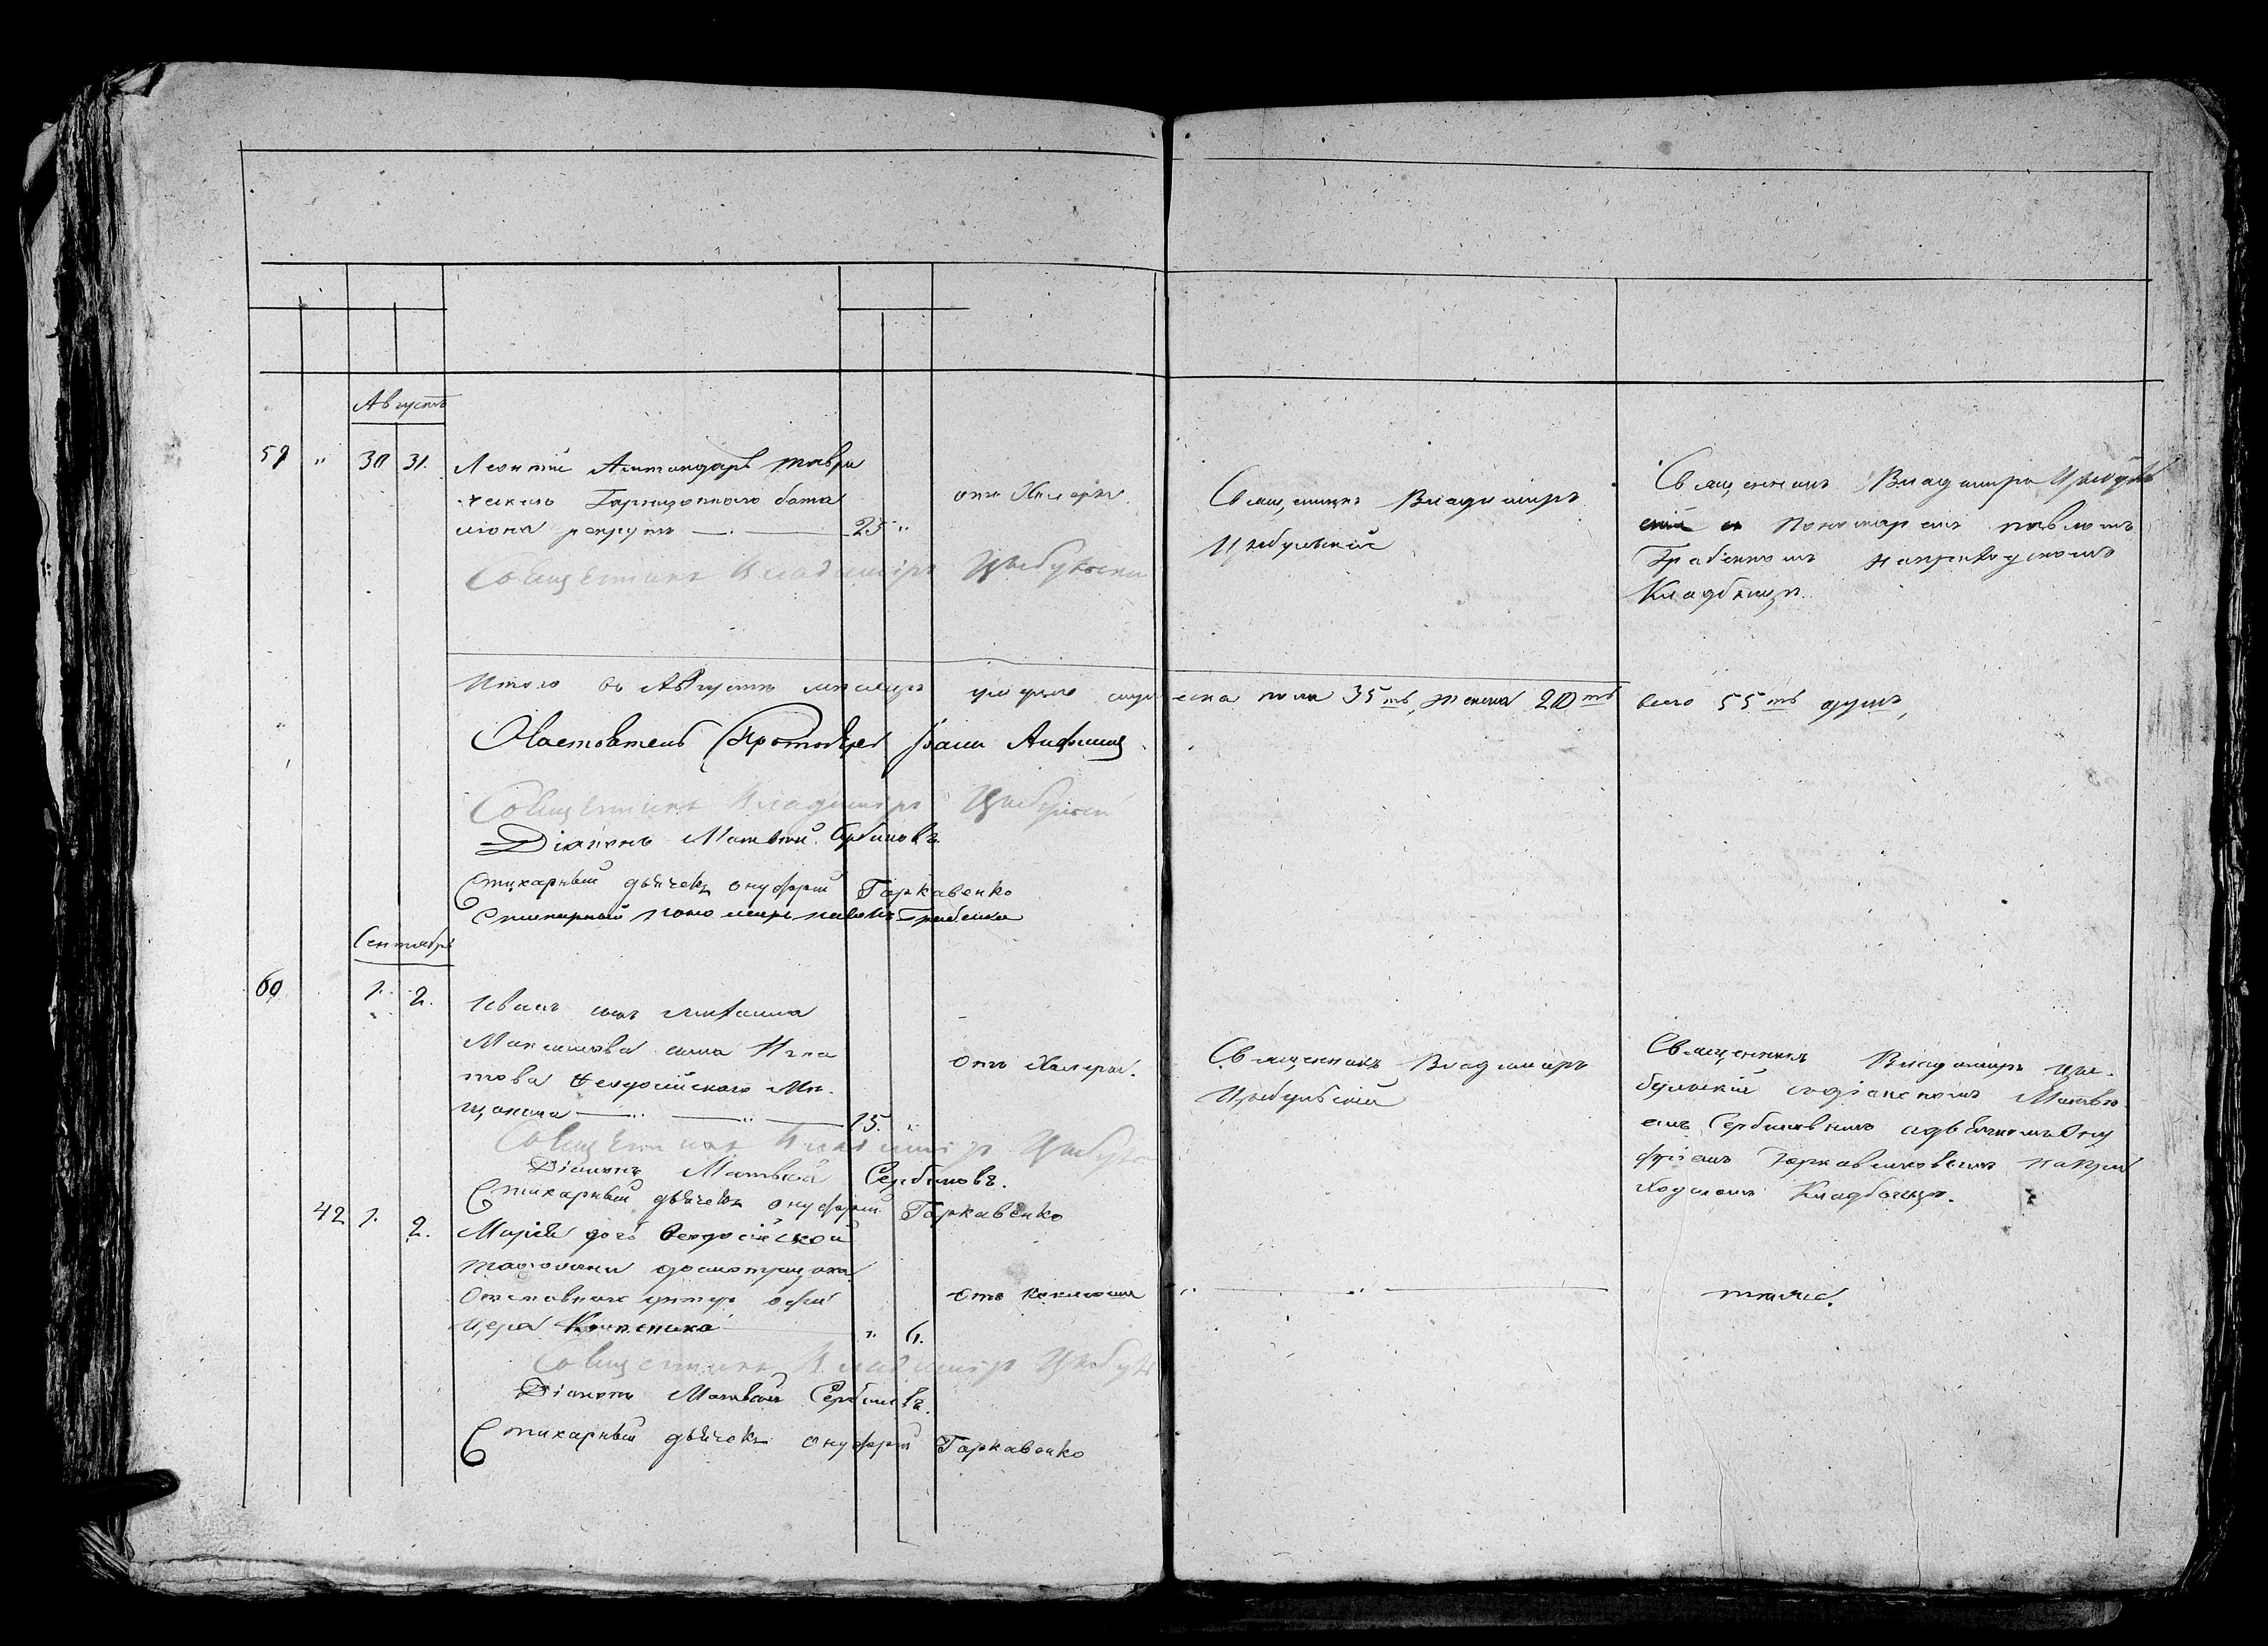 Августъ
59 " 30 31. Леонтій Амтондарь таври
ческаго Гарнизоннаго бата
ліона рекрутъ 25 "
отъ Холеры
Священникъ Владимиръ
Цыбульскій
Священникъ Владимиръ Цыбуль
скій и Пономаремъ Павломъ
Грабенкомъ на приходскомъ
Кладбищѣ.
Священникъ Владиміръ Цыбульскій
Итого въ Августѣ мѣсяцѣ умерло мужеска пола 35ть, женска 20ть всего 55ть душъ,
Настоятель Протоіерей Іоаннъ
Священникъ Владиміръ Цыбульскій
Діаконъ Матвѣй Сербиновъ
Стихарный дьячекъ Онуфрій Гаркавенко
Стихарный пономарь Павелъ Грабенко
Сентябрь
60 1. 2. Иванъ сынъ Михаила
Максимова сына Игна
това Ѳеодосійскаго Мѣ
щанина 15. "
отъ Холеры.
Священникъ Владимиръ
Цыбульскій
Священникъ Владимиръ Цы
бульскій съ діакономъ Матвѣ
емъ Сербиновымъ и дьячкомъ Ону
фріемъ Гаркавенковымъ на при
ходскомъ Кладбищѣ.
Священникъ Владиміръ Цыбульскій
Діаконъ Матвѣй Сербиновъ.
Стихарный дьячекъ Онуфрій Гаркавенко
42 1. 2. Марія дочь Ѳеодосійской
таможни досмотрщика
Отставнаго унтеръ офи
цера " 6.
отъ Коклюша
" "
тоже.
Священникъ Владиміръ Цыбульскій
Діаконъ Матвѣй Сербиновъ.
Стихарный дьячекъ Онуфрій Гаркавенко